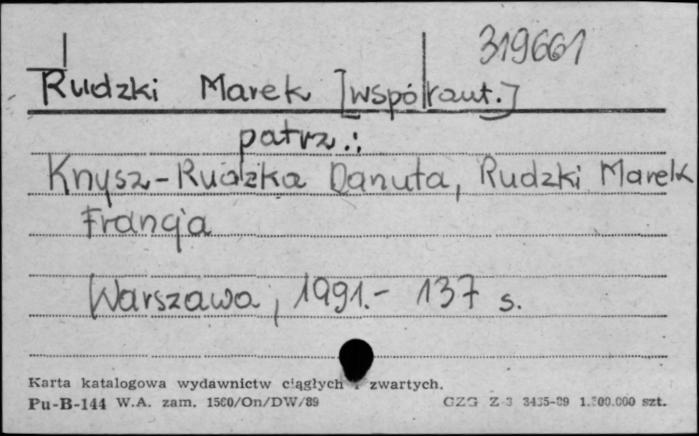 319661
Rudzki Marek [współaut.]
patrz.:
Knysz-Rudzka Danuta, Rudzki Marek
Francja
Warszawa, 1991.- 137 s.
Karta katalogowa wydawnictw ciągłych i zwartych.
Pu-B-144 W.A. zam. 1560/On/DW/89 CZG Z-3 3435-89 1.500.000 szt.